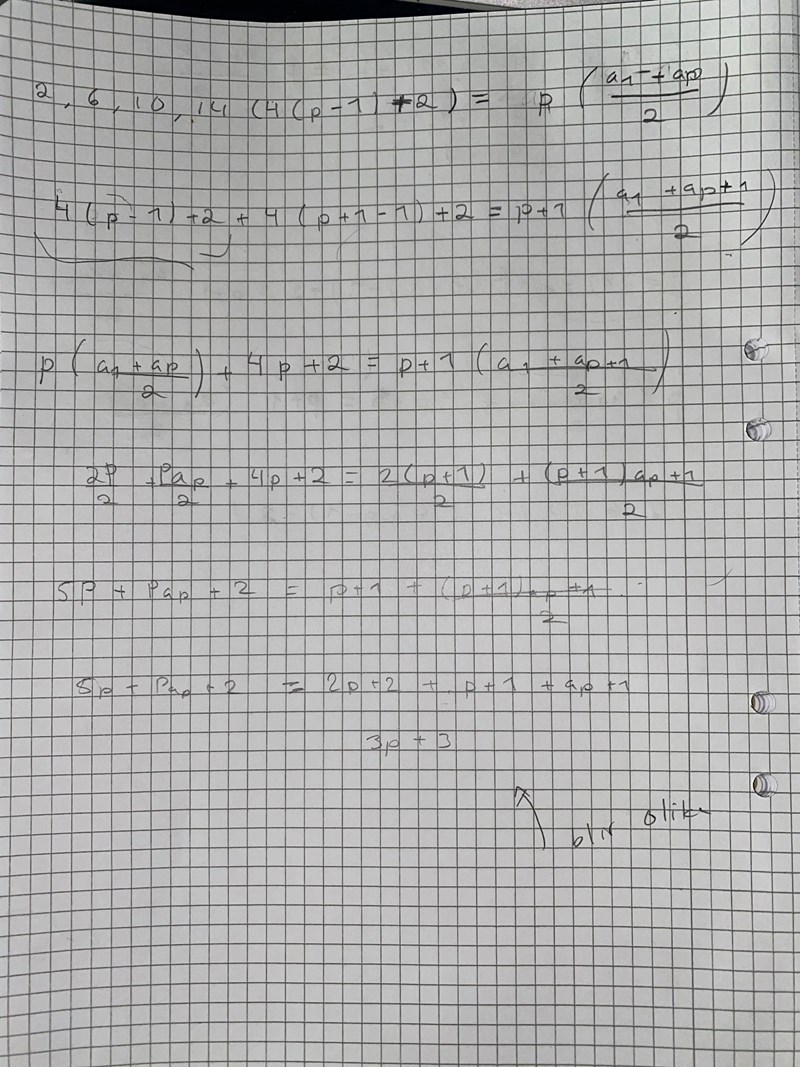 2, 6, 10, 14 (4(p-1)+2) = p (a₁ + ap / 2)
4(p-1)+2 + 4(p+1-1)+2 = p+1 (a₁ + ap+1 / 2)
p (a₁ + ap / 2) + 4p+2 = p+1 (a₁ + ap+1 / 2)
2p/2 + Pap/2 + 4p+2 = 2(p+1)/2 + (p+1)ap+1/2
5P + Pap + 2 = p+1 + (p+1)ap+1/2
5p + Pap + 2 = 2p+2 + p+1 + ap+1
3p + 3
blir olika